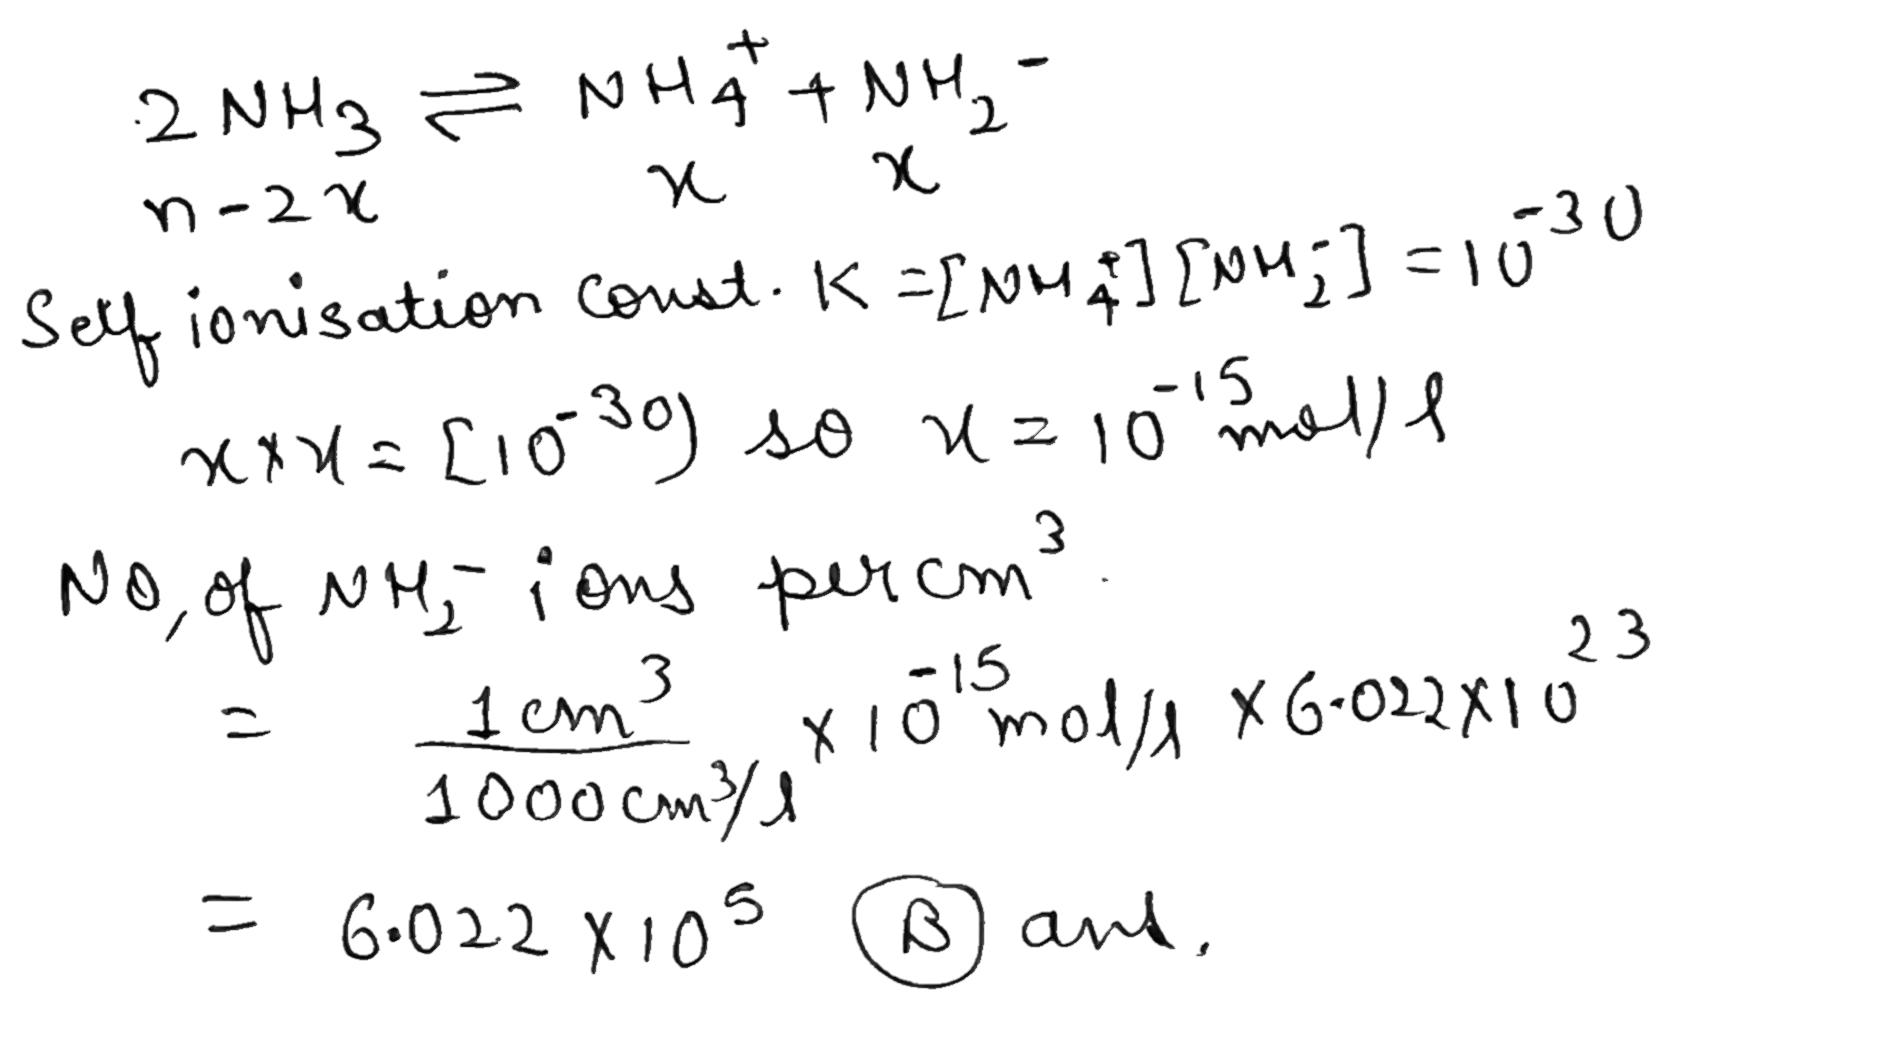 2 NH₃ ⇌ NH₄⁺ + NH₂⁻
n-2x x x
Self ionisation const. K = [NH₄⁺] [NH₂⁻] = 10⁻³⁰
x*x = [10⁻³⁰) so x = 10⁻¹⁵ mol/l
No, of NH₂⁻ ions per cm³.
= 1 cm³ / 1000 cm³/l × 10⁻¹⁵ mol/l × 6.022×10²³
= 6.022 × 10⁵ (B) ans.